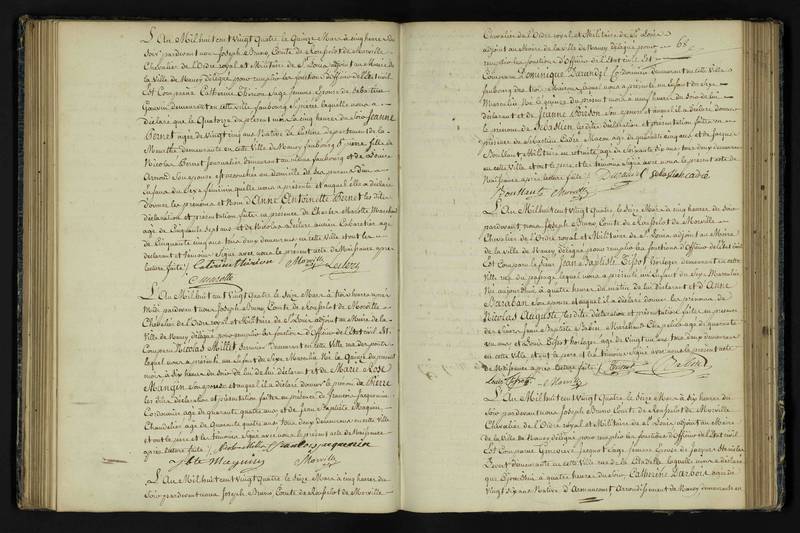 L'An Mil huit cent Vingt Quatre le Quinze Mars à cinq heures du
Soir pardevant nous Joseph Bruno, Comte de Rousselot de Morville
Chevalier de l'Ordre royal et Militaire de St Louis adjoint au Maire de
la Ville de Nancy délégué pour remplir les fonctions d'Officier de l'Etat civil
Est Comparue Catherine Thirion Sage femme, Epouse de Sébastien
demeurant en cette Ville faubourg St pierre laquelle nous a
déclaré que le Quatorze du présent mois à cinq heures du Soir Jeanne
Pernet agée de Vingt cinq ans Native de département de la
Meurthe demeurante en cette Ville de Nancy faubourg St pierre fille de
Nicolas Pernet Journalier demeurant au même faubourg et de
Son épouse est accouchée en domicile de elle d'un
Enfant du Sexe féminin qu'elle nous a présenté et auquel elle a déclaré
donner les prénoms et Nom d'Anne Antoinette Pernet les dites
déclaration et présentation faites en présence de Charles Marotte Marchand
agé de Cinquante Sept ans et de Nicolas Leclerc ancien Cabaretier agé
de Cinquante cinq ans tous deux demeurans en cette Ville et ont les
déclarant et témoins Signé avec nous le présent acte de Naissance après
lecture faite / Catherine thirion Morville Leclerc
C marotte
L'An Mil huit cent Vingt Quatre le Seize Mars à trois heures après
Midi pardevant nous Joseph Bruno, Comte de Rousselot de Morville
Chevalier de l'Ordre royal et Militaire de St Louis adjoint au Maire de la
Ville de Nancy délégué pour remplir les fonctions d'Officier de l'Etat civil Est
Comparu Nicolas Millet demeurant en cette Ville rue des ponts
lequel nous a présenté un Enfant du Sexe Masculin Né le Quinze du présent
mois à Six heures du Soir de lui déclarant et de Marie Rose
Mangin Son épouse et auquel il a déclaré donner le prénom de Pierre
les dites déclaration et présentation faites en présence de François Jacquemin
Cordonnier agé de quarante quatre ans et de Jean Baptiste Mangin
Chandelier agé de Quarante quatre ans tous deux demeurans en cette Ville
et ont le père et les témoins Signé avec nous le présent acte de Naissance
après lecture faite / Nicolas Millet françois jacquemin
Jbte Mangin Morville
L'An Mil huit cent Vingt Quatre le Seize Mars à cinq heures du
Soir pardevant nous Joseph Bruno, Comte de Rousselot de Morville
Chevalier de l'Ordre royal et Militaire de St Louis
adjoint au Maire de la Ville de Nancy délégué pour 68
remplir les fonctions d'Officier de l'Etat civil Est
Comparu Dominique Cordonnier demeurant en cette Ville
faubourg des trois Maisons, lequel nous a présenté un Enfant du Sexe
Masculin Né le Quinze du présent mois à neuf heures du Soir de lui
déclarant et de Jeanne Son épouse et auquel il a déclaré donner
le prénom de Sébastien les dites déclaration et présentation faites en
présence de Sébastien Cadié Maçon agé de quarante cinq ans et de Jacques
Militaire en retraite agé de Soixante dix ans tous deux demeurans
en cette Ville et ont le père et les témoins Signé avec nous le présent acte de
Naissance après lecture faite / Sebastien cadié
Morville
L'An Mil huit cent Vingt Quatre, le Seize Mars à cinq heures du Soir
pardevant nous Joseph Bruno, Comte de Rousselot de Morville
Chevalier de l'Ordre royal et Militaire de St Louis adjoint au Maire
de la Ville de Nancy délégué pour remplir les fonctions d'Officier de l'Etat civil
Est Comparu Jean Baptiste Tisot horloger demeurant en cette Ville
rue du passage, lequel nous a présenté un Enfant du Sexe Masculin
Né aujourd'hui à quatre heures du matin de lui déclarant et d'Anne
Baraban Son épouse et auquel il a déclaré donner les prénoms de
Nicolas Auguste, les dites déclaration et présentation faites en présence
de Jean Baptiste Marchand agé de quarante
un ans et Louis Tisot horloger agé de Vingt un ans tous deux demeurans
en cette Ville, et ont le père et les témoins Signé avec nous le présent acte
de Naissance après lecture faite /
Louis Morville
L'An Mil huit cent Vingt Quatre le Seize Mars à Six heures du
Soir pardevant nous Joseph Bruno Comte de Rousselot de Morville
Chevalier de l'Ordre royal et Militaire de St Louis adjoint au Maire
de la Ville de Nancy délégué pour remplir les fonctions d'Officier de l'Etat civil
Est Comparue Geneviève Sage femme Epouse de Jacques Stanislas
demeurante en cette Ville rue de la Citadelle laquelle nous a déclaré
que aujourd'hui à quatre heures du Soir, Catherine Barbois agée de
Vingt Six ans Native d'Armaucourt Arrondissement de Nancy demeurante en